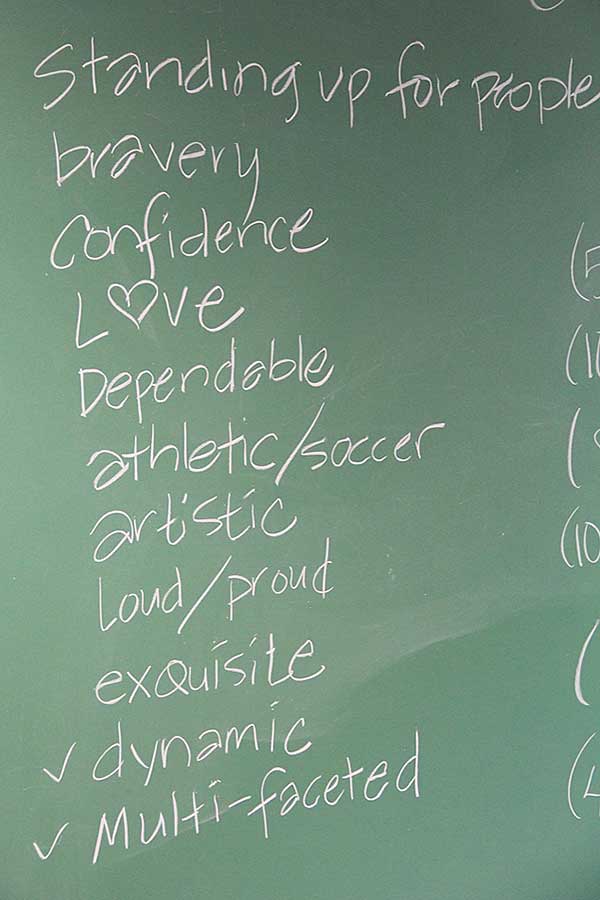 Standing up for people
bravery
Confidence
(5
L♡ve
(10
Dependable
athletic/soccer
artistic
(10
Loud/proud
exquisite
✓ dynamic
(4
✓ Multi-faceted